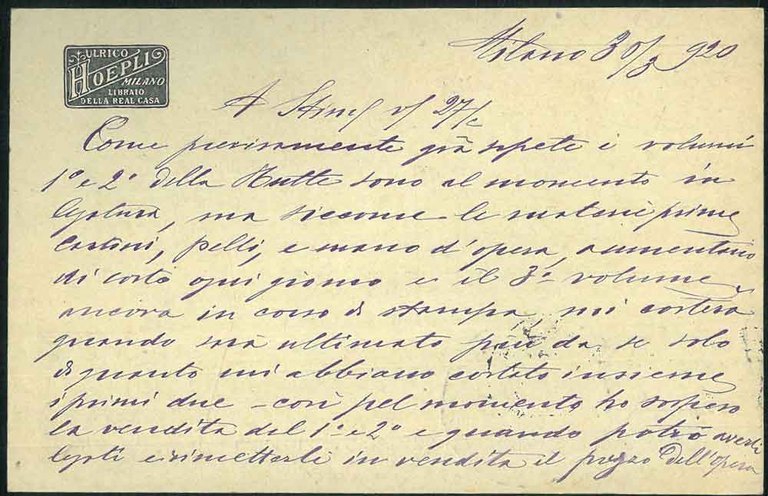 ULRICO
HOEPLI
MILANO
LIBRAIO
DELLA REAL CASA
Milano 30/3 920
A Stim/ v/ 27/c
Come previamente già sapete i volumi
1º e 2º della Hutte sono al momento in
legatura, ma siccome le materie prime
cartoni, pelli, e mano d'opera, aumentano
di costo ogni giorno e il 3º volume
ancora in corso di stampa, mi costerà
quando sarà ultimato più da se solo
di quanto mi abbiano costato insieme
i primi due - così pel momento ho sospeso
la vendita del 1º e 2º e quando potrò averli
legati e rimetterli in vendita il prezzo dell'opera